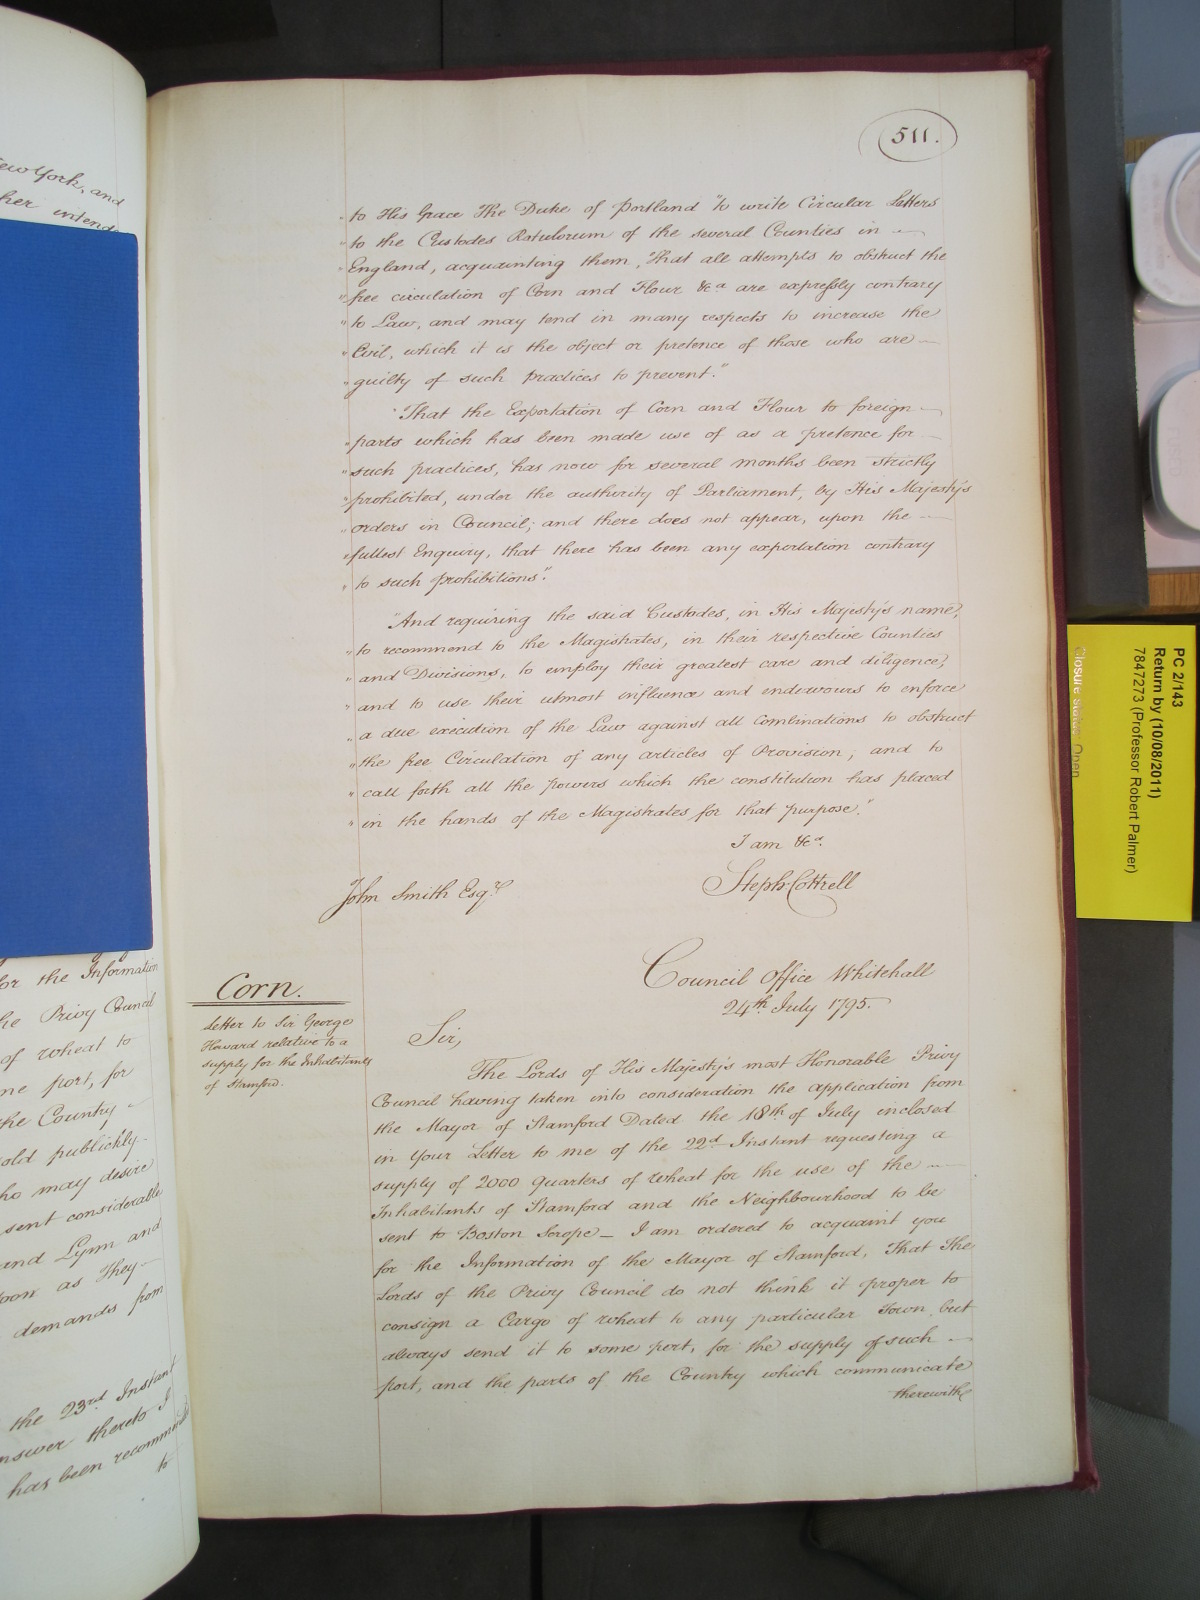 511.
to His Grace The Duke of Portland "to write Circular Letters
" to the Custodes Rotulorum of the several Counties in
" England, acquainting them, That all attempts to obstruct the
" free circulation of Corn and Flour &ca are expressly contrary
" to Law, and may tend in many respects to increase the
" Evil, which it is the object or pretence of those who are
" guilty of such practices to prevent."
"That the Exportation of Corn and Flour to foreign
" parts which has been made use of as a pretence for
" such practices, has now for several months been strictly
" prohibited, under the authority of Parliament, by His Majesty's
" orders in Council; and there does not appear, upon the
" fullest Enquiry, that there has been any exportation contrary
" to such prohibitions".
"And requiring the said Custodes, in His Majesty's name,
" to recommend to the Magistrates, in their respective Counties
" and Divisions, to employ their greatest care and diligence,
" and to use their utmost influence and endeavours to enforce
" a due execution of the Law against all Combinations to obstruct
" the free Circulation of any articles of Provision; and to
" call forth all the powers which the constitution has placed
" in the hands of the Magistrates for that purpose."
I am &ca.
Steph: Cottrell
John Smith Esqre
Council Office Whitehall
24th July 1795.
Corn.
Letter to Sir George
Howard relative to a
supply for the Inhabitants
of Stamford.
Sir,
The Lords of His Majesty's most Honorable Privy
Council having taken into consideration the application from
the Mayor of Stamford Dated the 18th of July inclosed
in Your Letter to me of the 22d Instant requesting a
supply of 2000 quarters of wheat for the use of the
Inhabitants of Stamford and the Neighbourhood to be
sent to Boston Scrope — I am ordered to acquaint you
for the Information of the Mayor of Stamford, That The
Lords of the Privy Council do not think it proper to
consign a Cargo of wheat to any particular Town, but
always send it to some port, for the supply of such
port, and the parts of the Country which communicate
therewith
ew York, and
her intend
for the Information
he Privy Council
of wheat to
me port, for
the Country
old publickly
ho may desire
sent considerable
and Lynn and
soon as They
demands from
the 23rd Instant
nswer thereto I
has been recomm
to
PC 2/143
Return by (10/08/2011)
7847273 (Professor Robert Palmer)
Closure status: Open